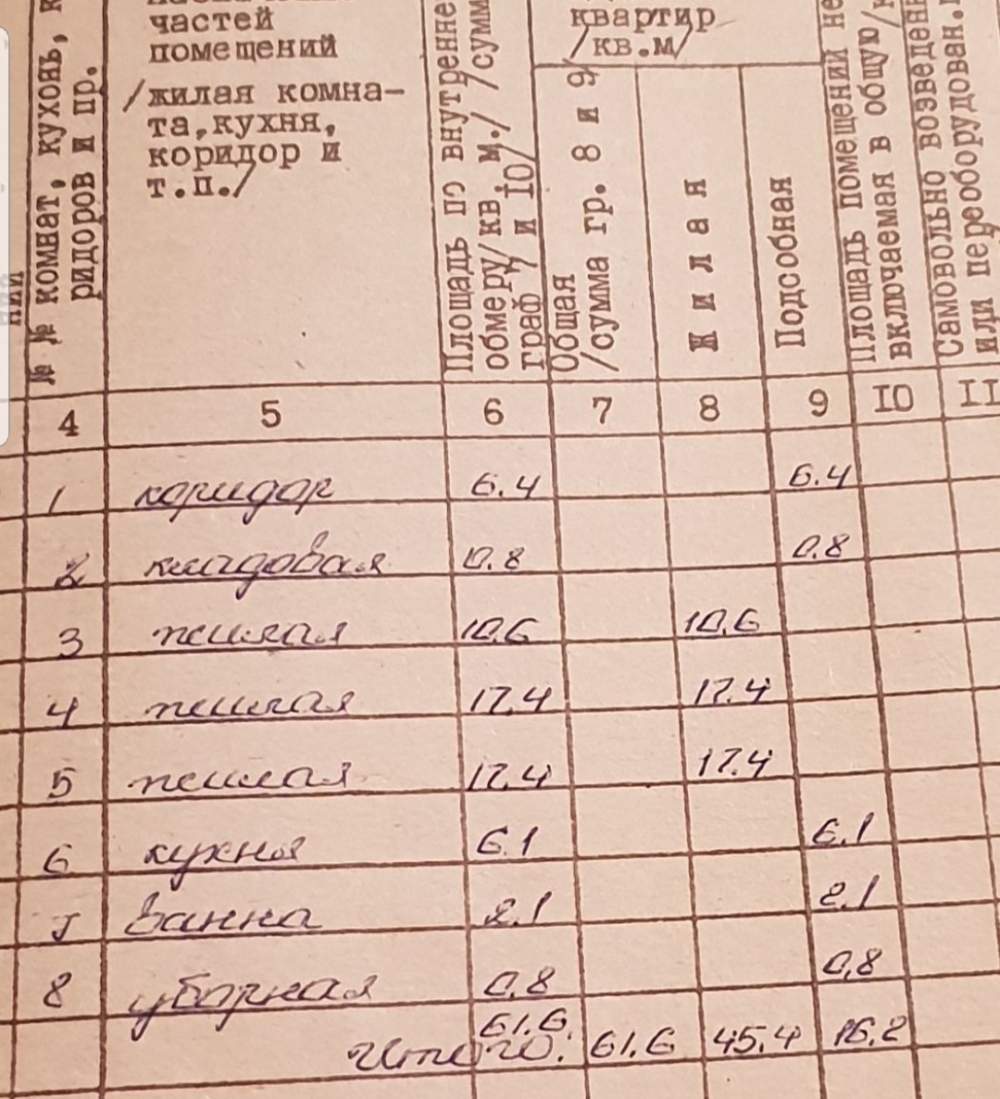 частей
помещений
/жилая комна-
та,кухня,
коридор и
т.п./
№ № комнат, кухонь,
ридоров и пр.
Площадь по внутренне
обмеру/кв.м./ /сумм
граф 7 и IO/
квартир
/кв.м/
Общая
/сумма гр. 8 и 9/
Жилая
Подсобная
Площадь помещений не
включаемая в общую/
Самовольно возведен
или переоборудован.
4 5 6 7 8 9 IO II
1 коридор 6.4 6.4
2 кладовая 0.8 0.8
3 жилая 10.6 10.6
4 жилая 17.4 17.4
5 жилая 17.4 17.4
6 кухня 6.1 6.1
7 ванна 2.1 2.1
8 уборная 0.8 0,8
61.6.
Итого: 61.6 45.4 16.2